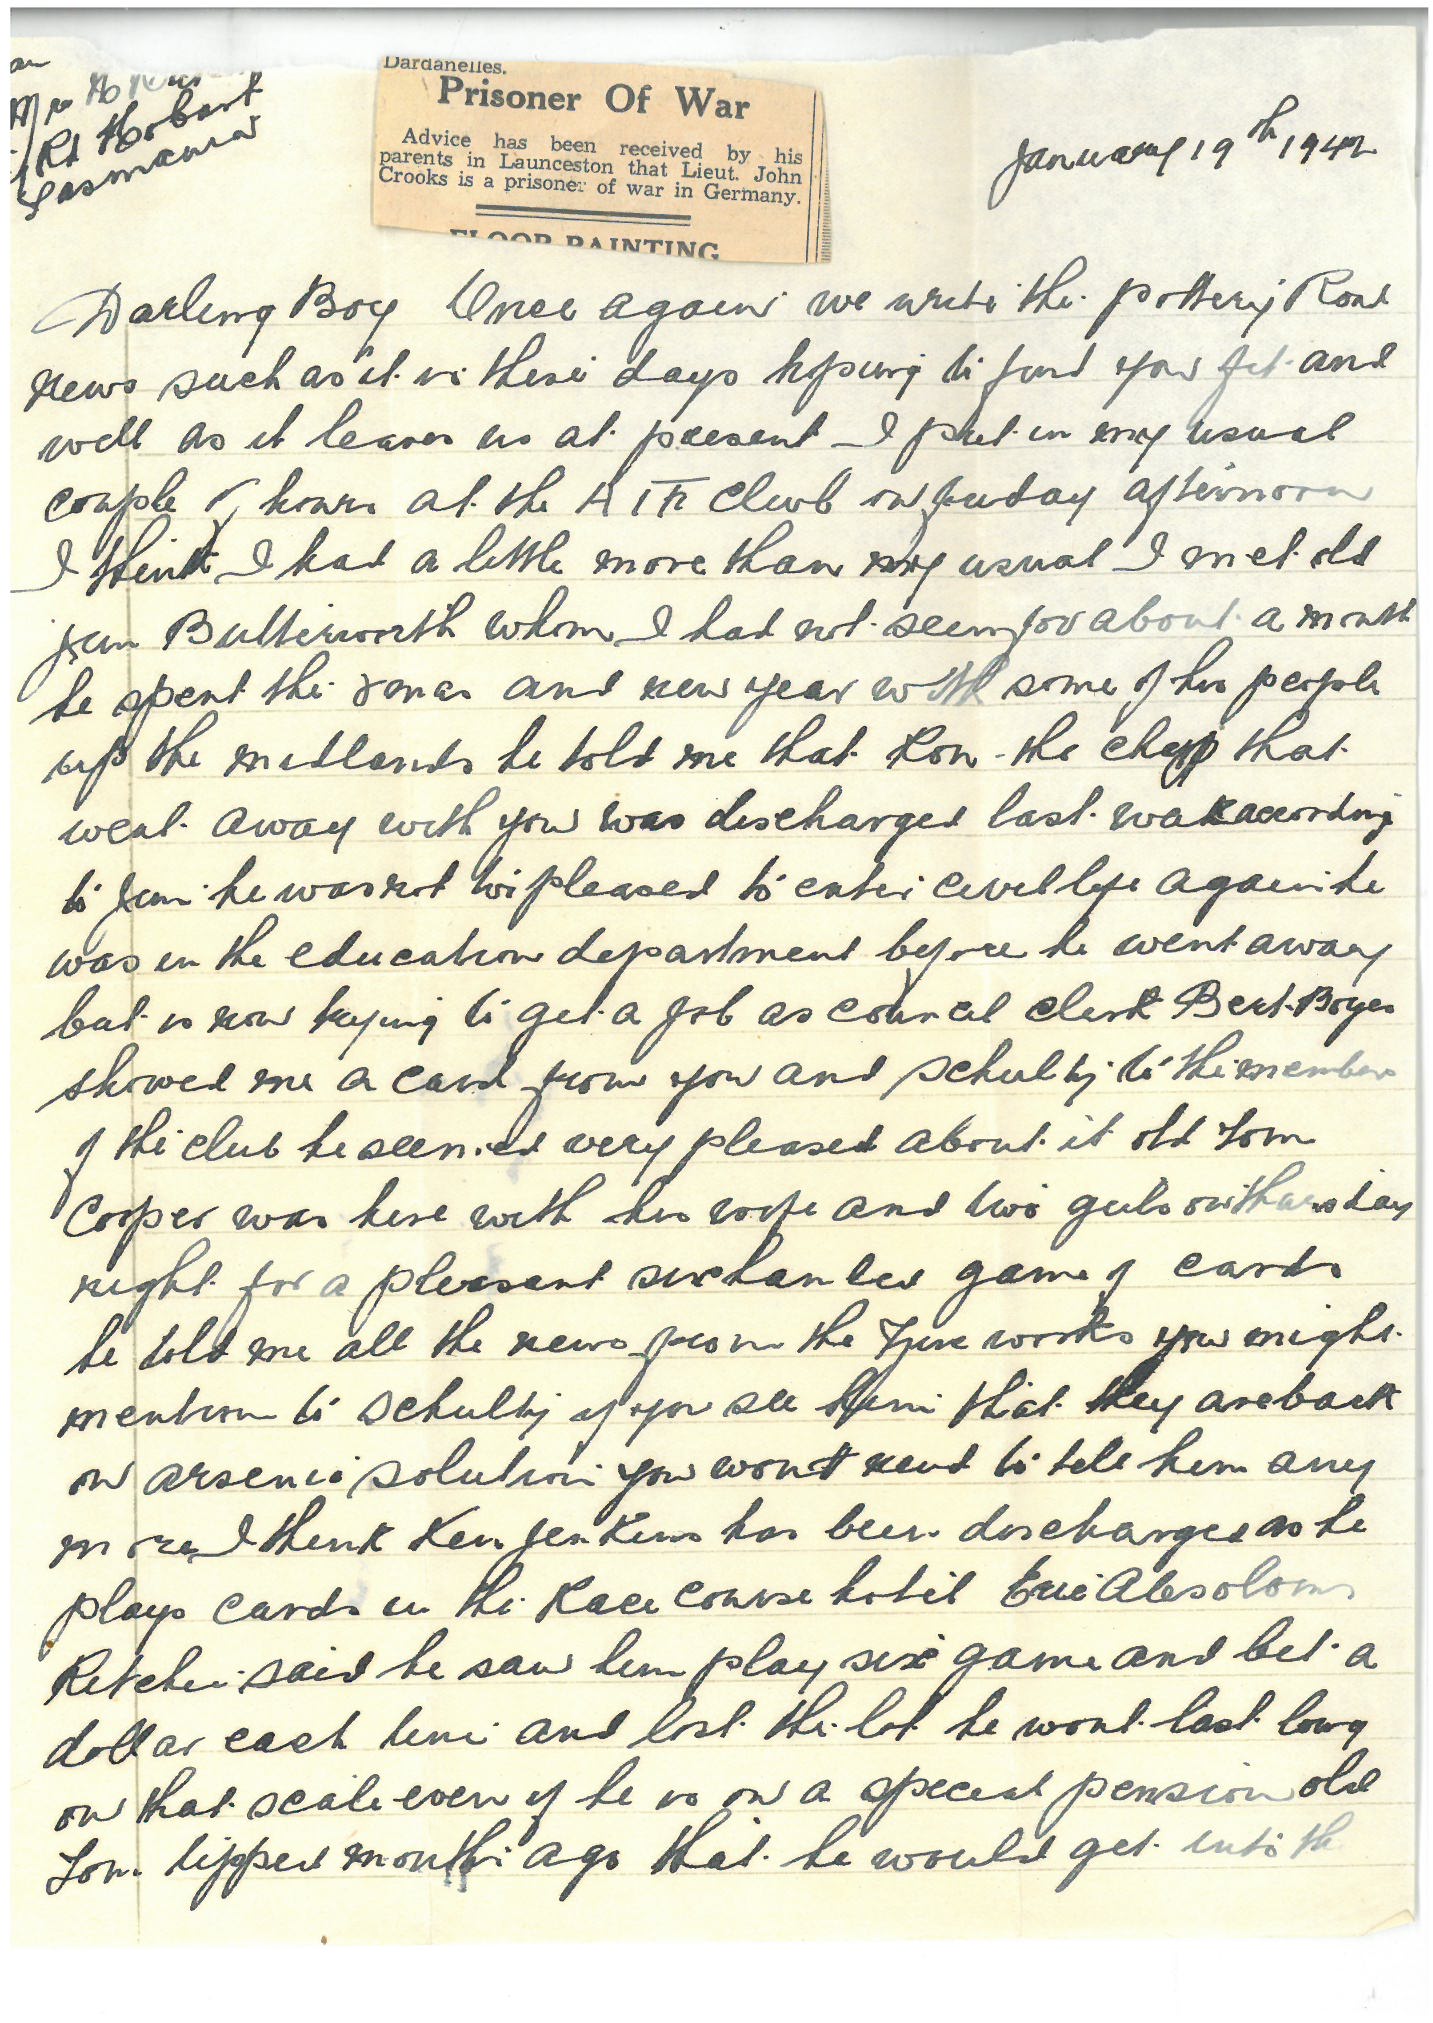 Mrs A
Rd Hobart
Tasmania
Dardanelles.
Prisoner Of War
Advice has been received by his
parents in Launceston that Lieut. John
Crooks is a prisoner of war in Germany.
FLOOR PAINTING
January 19th 1942
Darling Boy Once again we write the pottery Road
news such as it is these days hoping to find you fit and
well as it leaves us at present I put in my usual
couple of hours at the AIF Club on friday afternoon
I think I had a little more than my usual I met old
jim Butterworth whom I had not seen for about a month
he spent the xmas and new year with some of his people
up the midlands he told me that Ron the chap that
went away with you was discharged last week according
to jim he was not to pleased to enter civil life again he
was in the education department before he went away
but is now trying to get a job as council clerk Bert Boyes
showed me a card from you and schultz to the members
of the club he seemed very pleased about it old Tom
Cooper was here with his wife and two girls on thursday
night for a pleasant six handed game of cards
he told me all the news from the Zinc works you might
mention to schultz if you see him that they are back
on arsenic solution you wont need to tell him any
more I think Ken Jenkins has been discharged as he
plays cards in the Race course hotel Eric Absoloms
Ritchie said he saw him play six game and bet a
dollar each time and lost the lot he wont last long
on that scale even if he is on a special pension old
Tom tipped months ago that he would get into the